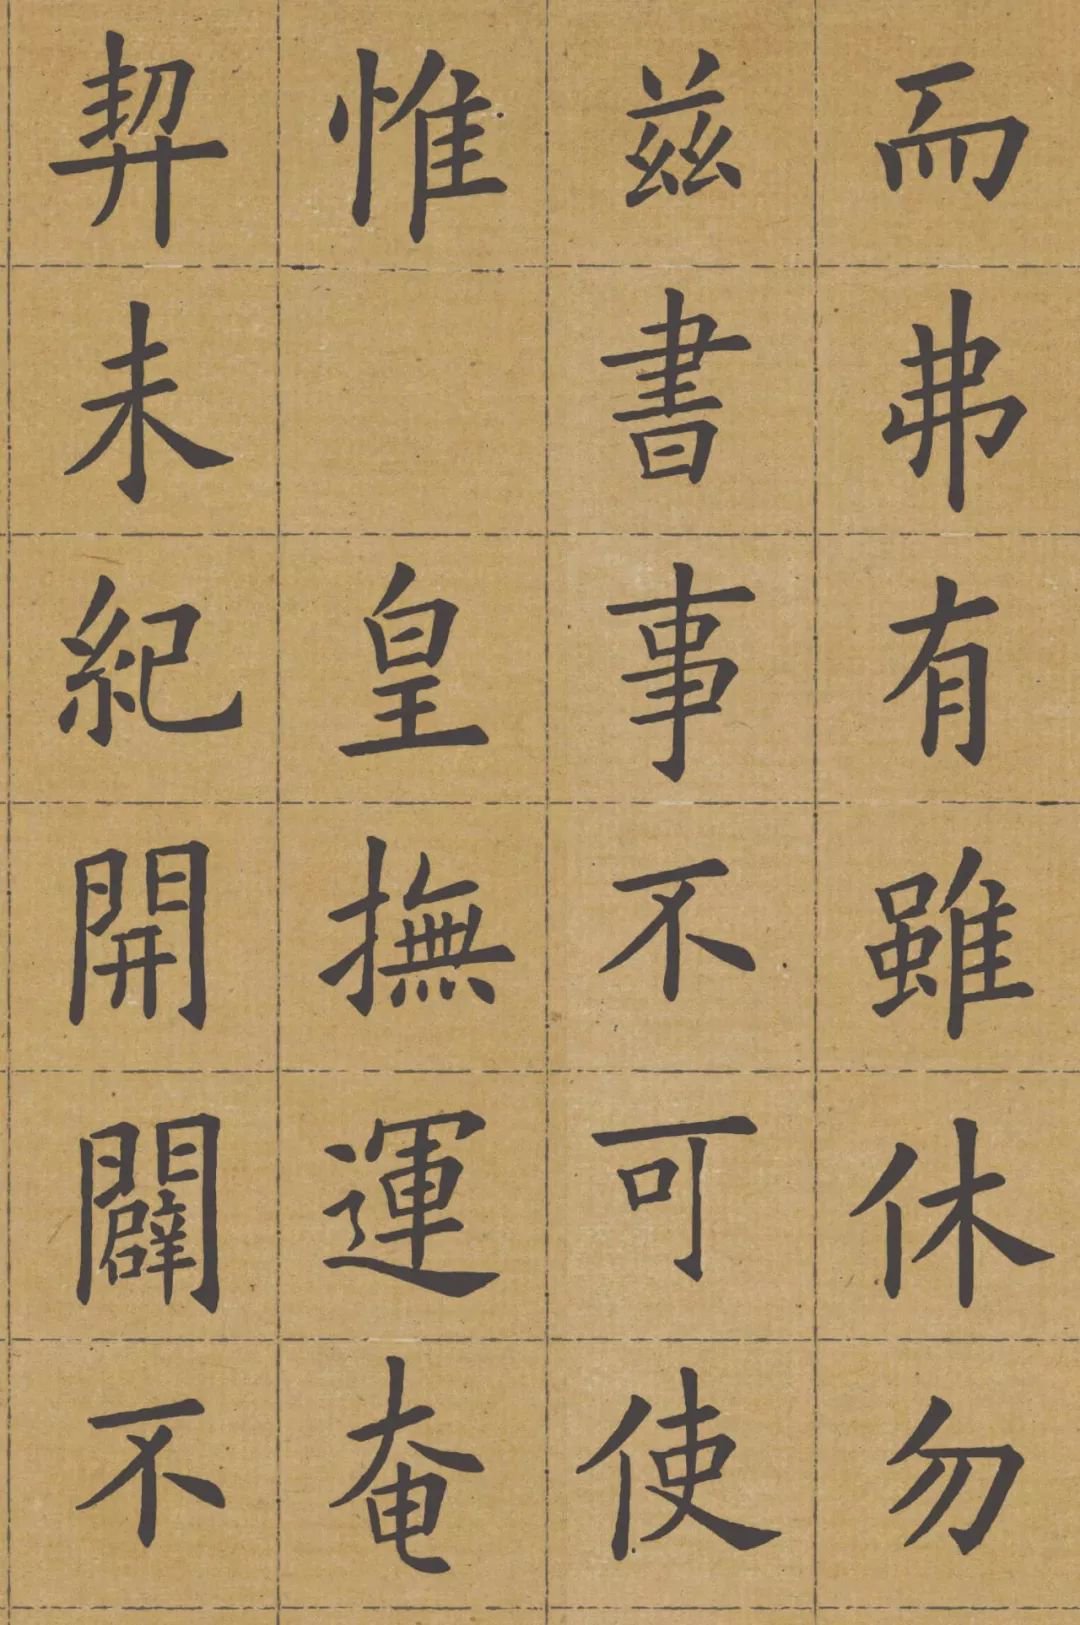 而弗有雖休勿
茲書事不可使
惟 皇撫運奄
契未紀開闢不